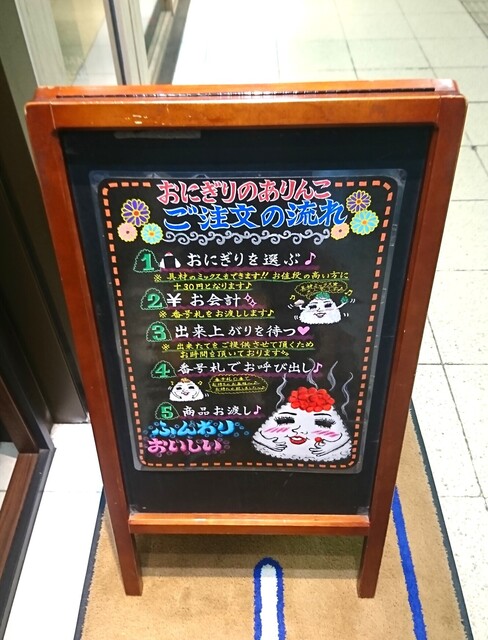 おにぎりのありんこ
ご注文の流れ
1 おにぎりを選ぶ♪
※具材のミックスもできます!!お値段の高い方に
+30円となります♪
2 ¥ お会計
※番号札をお渡しします♪
3 出来上がりを待つ♥
※出来たてをご提供させて頂くため
お時間を頂いております
4 番号札でお呼び出し♪
5 商品お渡し♪
ふんわり
おいしい